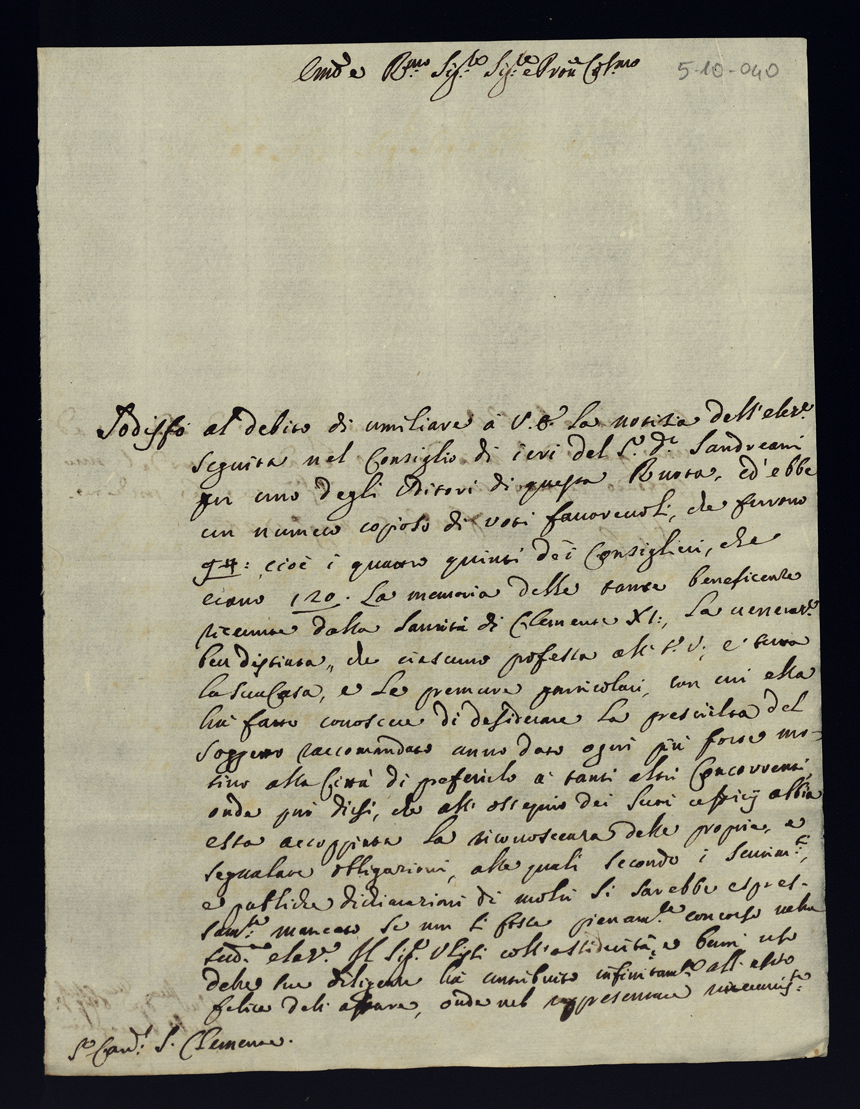 Em̃o e R.mo Sig.re Sig.re e Pron Col.mo
5-10-040
Sodisfo al debito di umiliare à V. E. la notizia dell'elez.e
seguita nel Consiglio di ieri del S.r D.r Sandreani
per uno degli Uditori di questa Ruota, ed'ebbe
un numero copioso di voti favorevoli, che furono
cioè i quattro quinti dei Consiglieri, che
erano 120. La memoria delle tante beneficenze
ricevute dalla Santità di Clemente XI:, la veneraz.e
ben distinta, che ciascuno professa all'E. V., e tutta
la sua Casa, e le premure particolari, con cui ella
hà fatto conoscere di desiderare la prescielta del
Soggetto raccomandato anno dato ogni più forte mo-
tivo alla Città di preferirlo à tanti altri Concorrenti,
onde può dirsi, che all'ossequio dei Suoi abbia
essa accoppiata la riconoscenza delle proprie, e
segnalate obligazioni, alle quali secondo i sentim.ti,
e publiche dichiarazioni di molti si sarebbe espres-
sam.te mancato, se non si fosse pienam.te concorso nella
sud.a elez.e Il Sig.r coll'assiduità, e buon uso
delle sue diligenze hà contribuito infinitam.te all'esito
felice dell'affare, onde nel rappresentare
S.r Card.l S. Clemente.